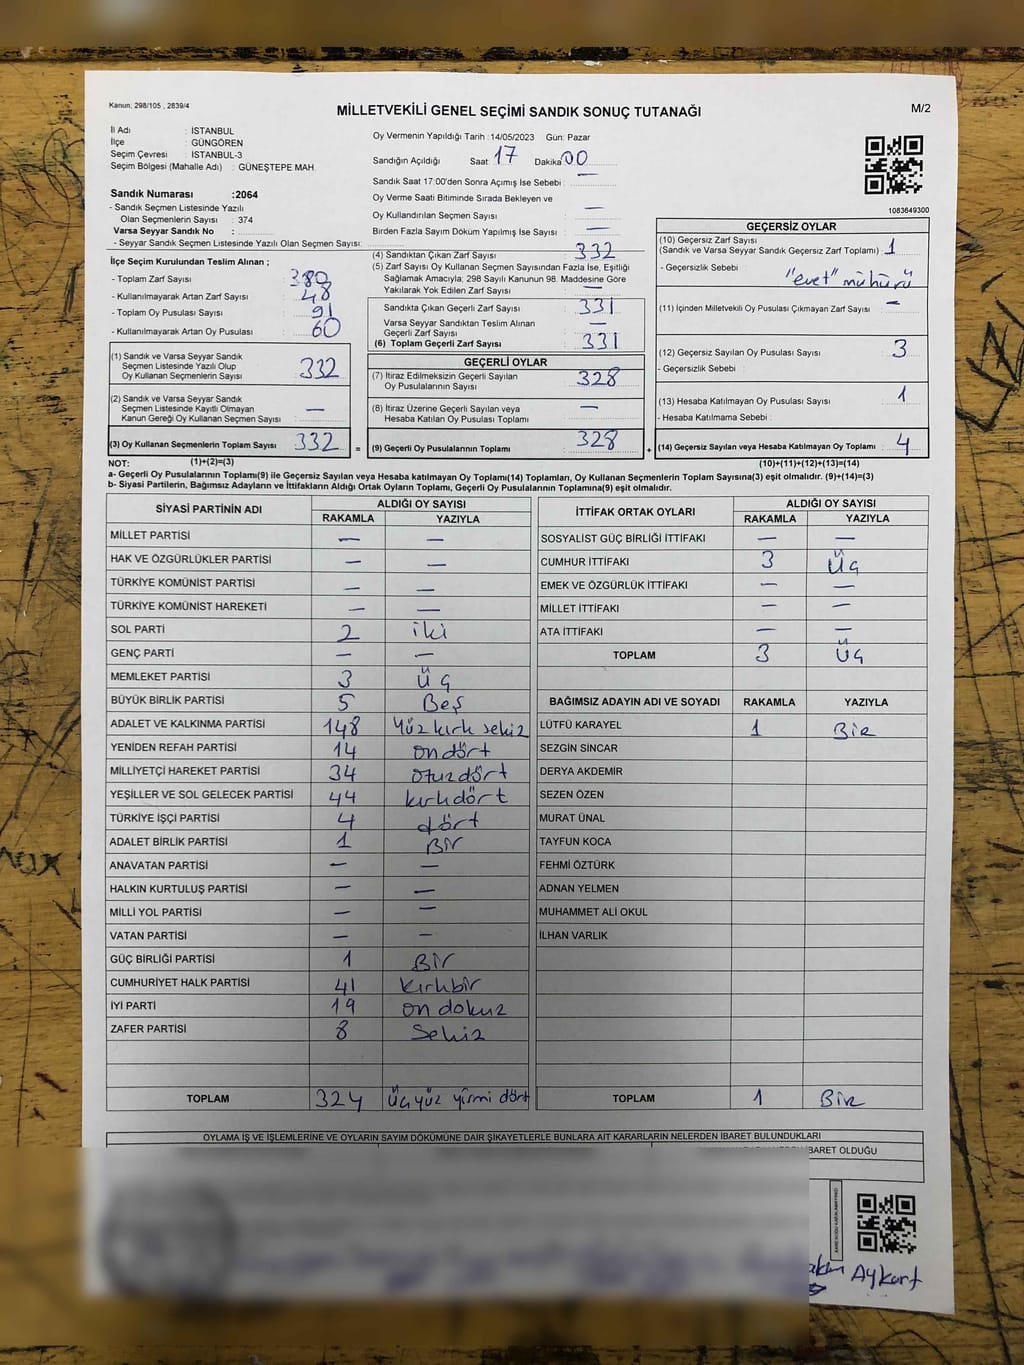 Kanun, 298/105 , 2839/4
MİLLETVEKİLİ GENEL SEÇİMİ SANDIK SONUÇ TUTANAĞI
M/2
İl Adı : İSTANBUL
İlçe : GÜNGÖREN
Seçim Çevresi : İSTANBUL-3
Seçim Bölgesi (Mahalle Adı) : GÜNEŞTEPE MAH.
Sandık Numarası :2064
- Sandık Seçmen Listesinde Yazılı
Olan Seçmenlerin Sayısı : 374
Varsa Seyyar Sandık No :
- Seyyar Sandık Seçmen Listesinde Yazılı Olan Seçmen Sayısı:
İlçe Seçim Kurulundan Teslim Alınan ;
- Toplam Zarf Sayısı : 380
- Kullanılmayarak Artan Zarf Sayısı : 48
- Toplam Oy Pusulası Sayısı : 91
- Kullanılmayarak Artan Oy Pusulası : 60
(1) Sandık ve Varsa Seyyar Sandık
Seçmen Listesinde Yazılı Olup
Oy Kullanan Seçmenlerin Sayısı : 332
(2) Sandık ve Varsa Seyyar Sandık
Seçmen Listesinde Kayıtlı Olmayan
Kanun Gereği Oy Kullanan Seçmen Sayısı : —
(3) Oy Kullanan Seçmenlerin Toplam Sayısı : 332 =
Oy Vermenin Yapıldığı Tarih :14/05/2023 Gün: Pazar
Sandığın Açıldığı Saat 17 Dakika 00
Sandık Saat 17:00'den Sonra Açımış İse Sebebi : —
Oy Verme Saati Bitiminde Sırada Bekleyen ve
Oy Kullandırılan Seçmen Sayısı : —
Birden Fazla Sayım Döküm Yapılmış İse Sayısı : —
(4) Sandıktan Çıkan Zarf Sayısı : 332
(5) Zarf Sayısı Oy Kullanan Seçmen Sayısından Fazla İse, Eşitliği
Sağlamak Amacıyla; 298 Sayılı Kanunun 98. Maddesine Göre
Yakılarak Yok Edilen Zarf Sayısı : —
Sandıkta Çıkan Geçerli Zarf Sayısı : 331
Varsa Seyyar Sandıktan Teslim Alınan
Geçerli Zarf Sayısı : —
(6) Toplam Geçerli Zarf Sayısı : 331
GEÇERLİ OYLAR
(7) İtiraz Edilmeksizin Geçerli Sayılan
Oy Pusulalarının Sayısı : 328
(8) İtiraz Üzerine Geçerli Sayılan veya
Hesaba Katılan Oy Pusulası Toplamı : —
(9) Geçerli Oy Pusulalarının Toplamı : 328 +
1083649300
GEÇERSİZ OYLAR
(10) Geçersiz Zarf Sayısı
(Sandık ve Varsa Seyyar Sandık Geçersiz Zarf Toplamı) : 1
- Geçersizlik Sebebi : "evet" mühürü
(11) İçinden Milletvekili Oy Pusulası Çıkmayan Zarf Sayısı : —
(12) Geçersiz Sayılan Oy Pusulası Sayısı : 3
- Geçersizlik Sebebi :
(13) Hesaba Katılmayan Oy Pusulası Sayısı : 1
- Hesaba Katılmama Sebebi :
(14) Geçersiz Sayılan veya Hesaba Katılmayan Oy Toplamı : 4
NOT: (1)+(2)=(3) (10)+(11)+(12)+(13)=(14)
a- Geçerli Oy Pusulalarının Toplamı(9) ile Geçersiz Sayılan veya Hesaba katılmayan Oy Toplamı(14) Toplamları, Oy Kullanan Seçmenlerin Toplam Sayısına(3) eşit olmalıdır. (9)+(14)=(3)
b- Siyasi Partilerin, Bağımsız Adayların ve İttifakların Aldığı Ortak Oyların Toplamı, Geçerli Oy Pusulalarının Toplamına(9) eşit olmalıdır.
SİYASİ PARTİNİN ADI ALDIĞI OY SAYISI
RAKAMLA YAZIYLA
MİLLET PARTİSİ — —
HAK VE ÖZGÜRLÜKLER PARTİSİ — —
TÜRKİYE KOMÜNİST PARTİSİ — —
TÜRKİYE KOMÜNİST HAREKETİ — —
SOL PARTİ 2 iki
GENÇ PARTİ — —
MEMLEKET PARTİSİ 3 Üç
BÜYÜK BİRLİK PARTİSİ 5 Beş
ADALET VE KALKINMA PARTİSİ 148 Yüz kırk sekiz
YENİDEN REFAH PARTİSİ 14 on dört
MİLLİYETÇİ HAREKET PARTİSİ 34 otuzdört
YEŞİLLER VE SOL GELECEK PARTİSİ 44 kırkdört
TÜRKİYE İŞÇİ PARTİSİ 4 dört
ADALET BİRLİK PARTİSİ 1 Bir
ANAVATAN PARTİSİ — —
HALKIN KURTULUŞ PARTİSİ — —
MİLLİ YOL PARTİSİ — —
VATAN PARTİSİ — —
GÜÇ BİRLİĞİ PARTİSİ 1 Bir
CUMHURİYET HALK PARTİSİ 41 kırkbir
İYİ PARTİ 19 on dokuz
ZAFER PARTİSİ 8 Sekiz
TOPLAM 324 Üçyüz yirmi dört
İTTİFAK ORTAK OYLARI ALDIĞI OY SAYISI
RAKAMLA YAZIYLA
SOSYALİST GÜÇ BİRLİĞİ İTTİFAKI — —
CUMHUR İTTİFAKI 3 Üç
EMEK VE ÖZGÜRLÜK İTTİFAKI — —
MİLLET İTTİFAKI — —
ATA İTTİFAKI — —
TOPLAM 3 Üç
BAĞIMSIZ ADAYIN ADI VE SOYADI RAKAMLA YAZIYLA
LÜTFÜ KARAYEL 1 Bir
SEZGİN SİNCAR
DERYA AKDEMİR
SEZEN ÖZEN
MURAT ÜNAL
TAYFUN KOCA
FEHMİ ÖZTÜRK
ADNAN YELMEN
MUHAMMET ALİ OKUL
İLHAN VARLIK
TOPLAM 1 Bir
OYLAMA İŞ VE İŞLEMLERİNE VE OYLARIN SAYIM DÖKÜMÜNE DAİR ŞİKAYETLERLE BUNLARA AİT KARARLARIN NELERDEN İBARET BULUNDUKLARI
İBARET OLDUĞU
KAREKODU KARALAMAYINIZ!
Aykurt